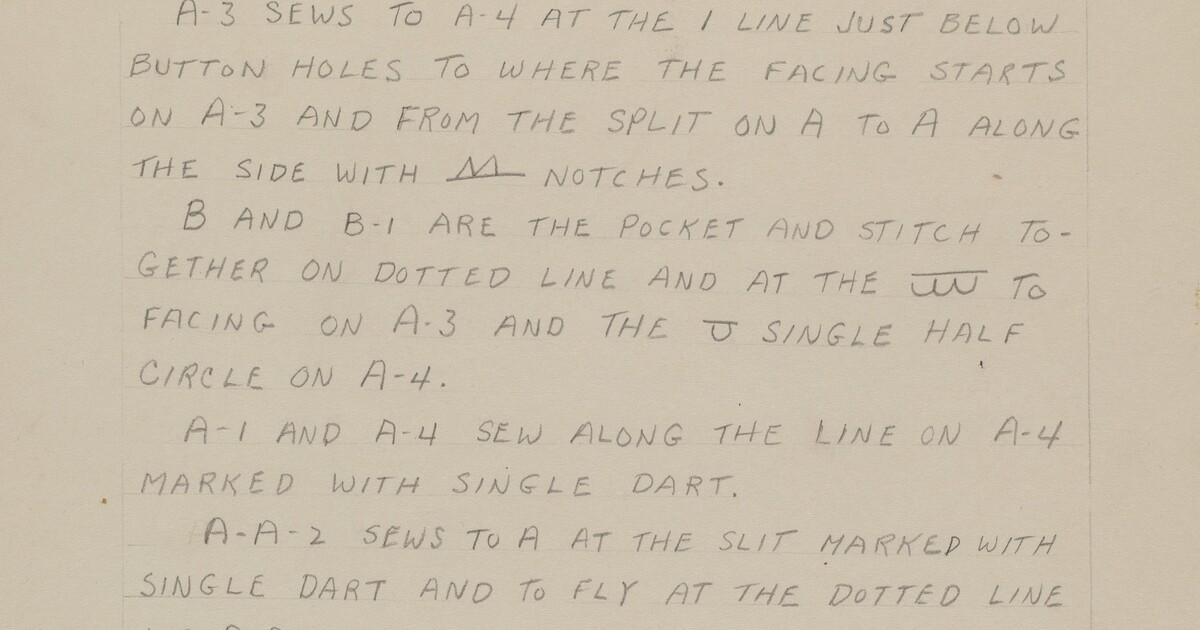 A-3 SEWS TO A-4 AT THE 1 LINE JUST BELOW
BUTTON HOLES TO WHERE THE FACING STARTS
ON A-3 AND FROM THE SPLIT ON A TO A ALONG
THE SIDE WITH NOTCHES.
B AND B-1 ARE THE POCKET AND STITCH TO-
GETHER ON DOTTED LINE AND AT THE TO
FACING ON A-3 AND THE SINGLE HALF
CIRCLE ON A-4.
A-1 AND A-4 SEW ALONG THE LINE ON A-4
MARKED WITH SINGLE DART.
A-A-2 SEWS TO A AT THE SLIT MARKED WITH
SINGLE DART AND TO FLY AT THE DOTTED LINE